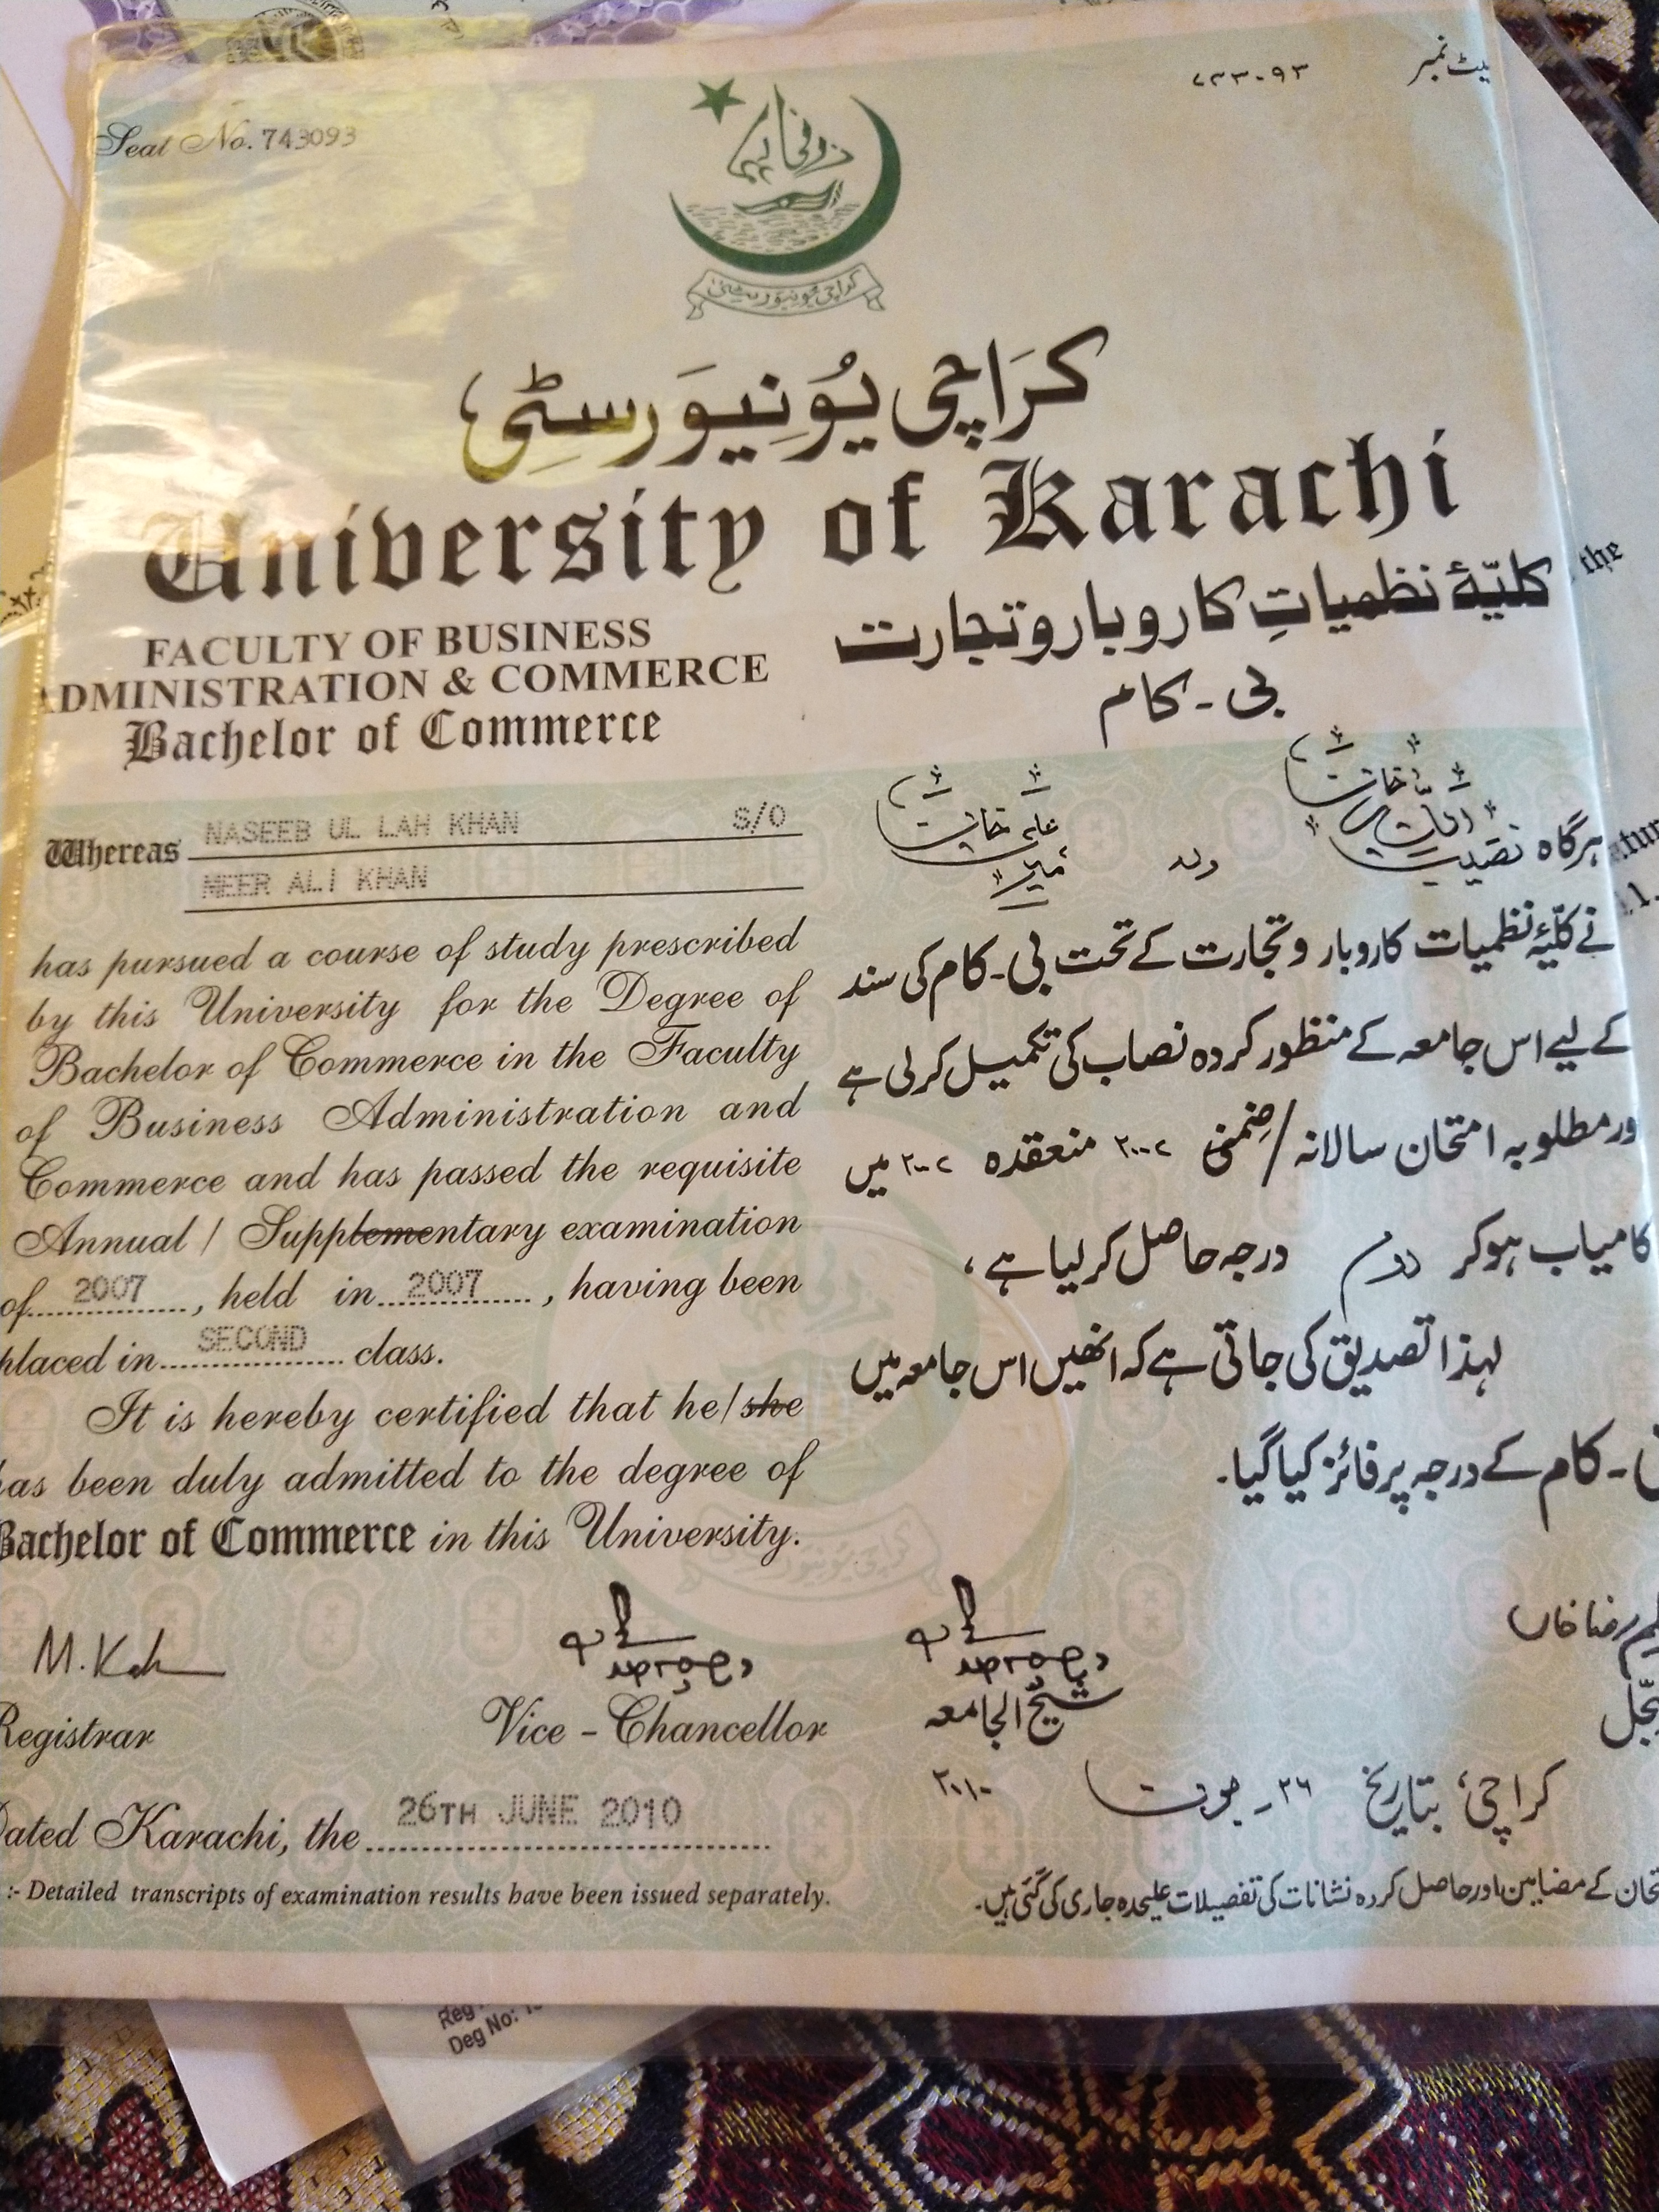 Seat No. 743093
۷۴۳۰۹۳ نمبر
کراچی یونیورسٹی
کَرَاچی یُوْنِیوَرسٹِی
University of Karachi
FACULTY OF BUSINESS
ADMINISTRATION & COMMERCE
Bachelor of Commerce
کلیّۂ نظمیاتِ کاروبار و تجارت
بی - کام
Whereas NASEEB UL LAH KHAN S/O
MEER ALI KHAN
has pursued a course of study prescribed
by this University for the Degree of
Bachelor of Commerce in the Faculty
of Business Administration and
Commerce and has passed the requisite
Annual / Supplementary examination
of 2007, held in 2007, having been
placed in SECOND class.
It is hereby certified that he/she
has been duly admitted to the degree of
Bachelor of Commerce in this University.
ہرگاہ نصیب اللہ خان ولد میر علی خان
نے کلّیۂ نظمیات کاروبار و تجارت کے تحت بی - کام کی سند
کے لیے اس جامعہ کے منظور کردہ نصاب کی تکمیل کرلی ہے
ور مطلوبہ امتحان سالانہ / ضِمنی ۲۰۰۷ منعقدہ ۲۰۰۷ میں
کامیاب ہوکر دوم درجہ حاصل کرلیا ہے،
لہذا تصدیق کی جاتی ہے کہ انھیں اس جامعہ میں
- کام کے درجہ پر فائز کیا گیا۔
Registrar
Vice - Chancellor
شیخ الجامعہ
رضا خاں
Dated Karachi, the 26TH JUNE 2010
کراچی، بتاریخ ۲۶ - جون ۲۰۱۰
:- Detailed transcripts of examination results have been issued separately.
کے مضامین اور حاصل کردہ نشانات کی تفصیلات علیحدہ جاری کی گئی ہیں۔
the
Reg
Deg No: